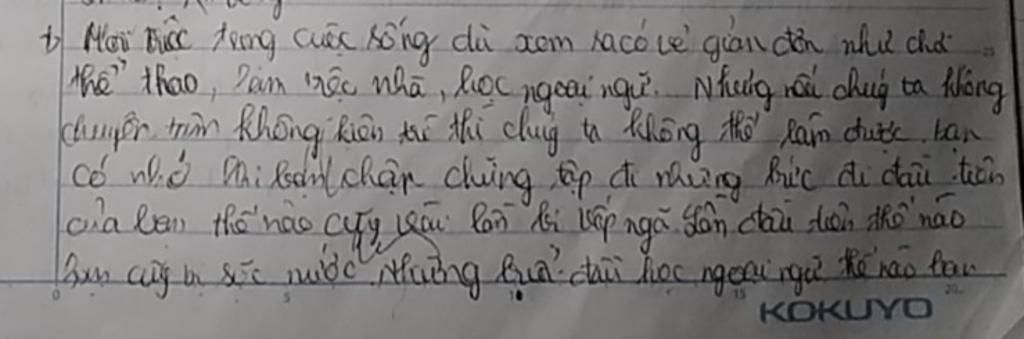 Mọi việc trong cuộc sống dù xem ra có vẻ giản đơn như chơi
thể thao, làm việc nhà, học ngoại ngữ. Nhưng nếu chúng ta không
chuyên tâm không kiên trì thì chúng ta không thể làm được. bạn
có nhớ khi bạn chập chững tập đi những bước đi đầu tiên
của bạn thế nào cũng vài lần bị vấp ngã. Lần đầu tiên thế nào
bạn cũng bị sặc nước. Những buổi đầu học ngoại ngữ thế nào bạn
KOKUYO